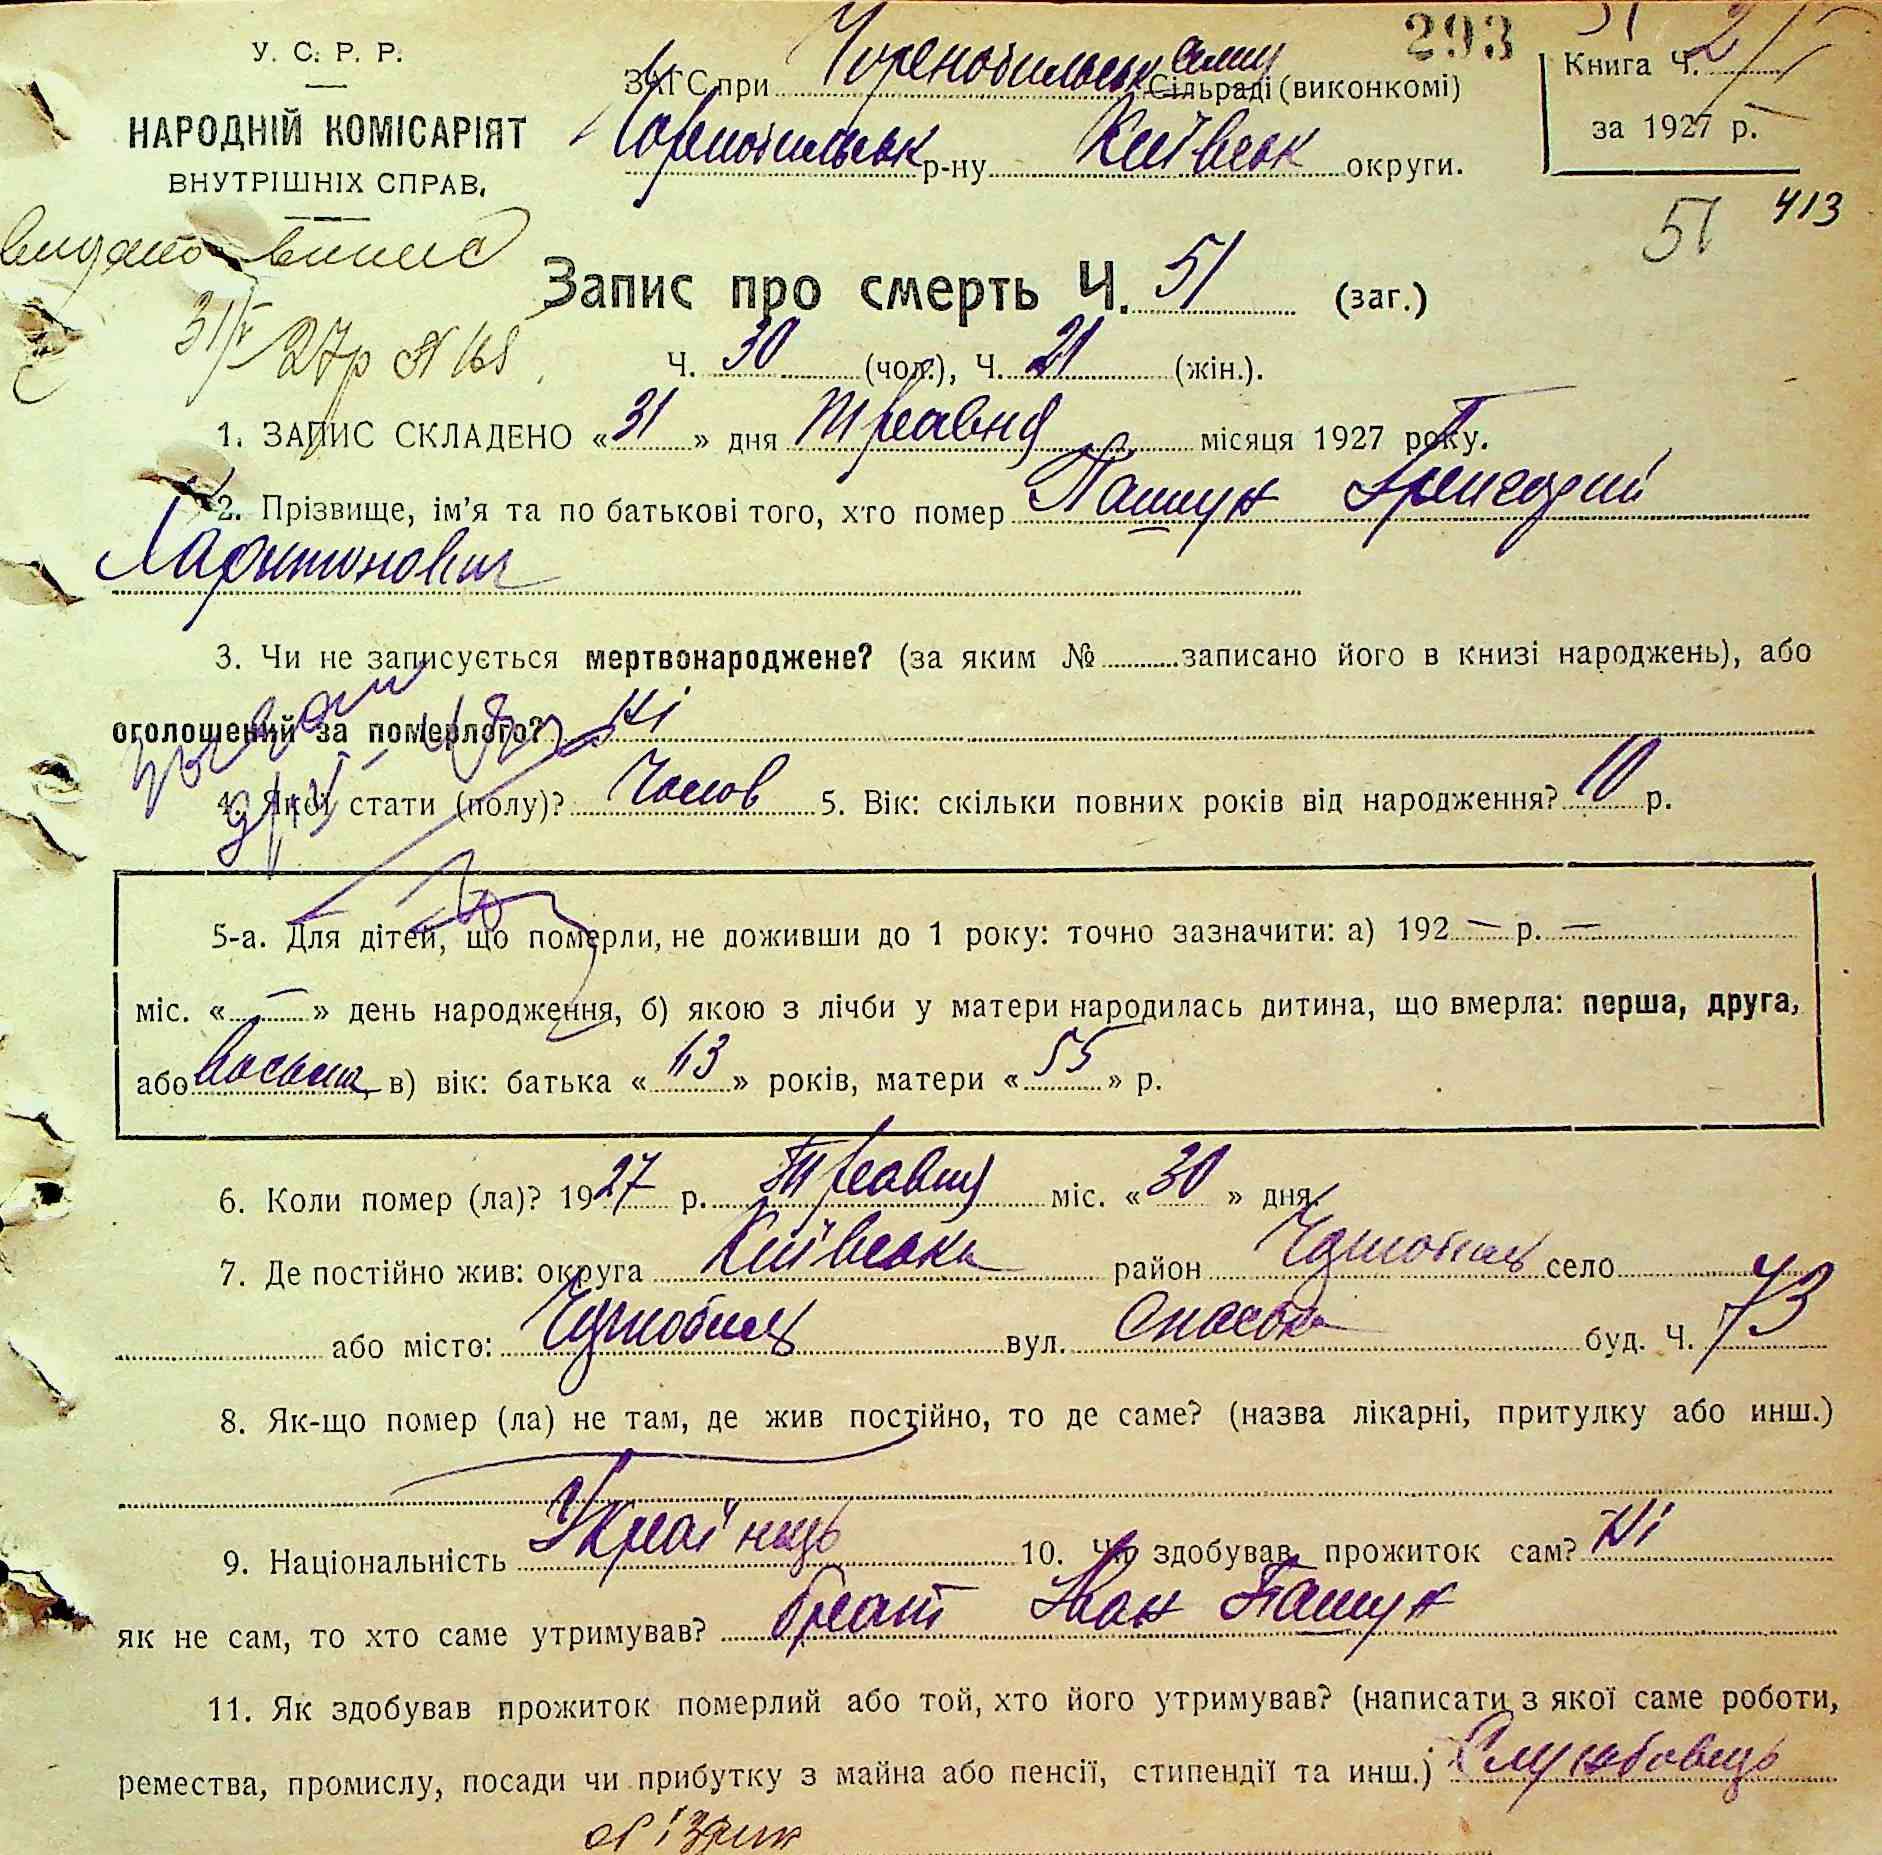 293
У. С. Р. Р.
НАРОДНІЙ КОМІСАРІЯТ
ВНУТРІШНІХ СПРАВ.
ЗАГС при Чорнобильськ Сільраді (виконкомі)
Чорнобильськ р-ну Київськ округи.
Книга Ч. 2
за 1927 р.
51 413
видано випис
31/V 27р N
Запис про смерть Ч. 51 (заг.)
Ч. 30 (чол.), Ч. 21 (жін.).
1. ЗАПИС СКЛАДЕНО «31» дня Травня місяця 1927 року.
2. Прізвище, ім'я та по батькові того, хто помер Пашун Григорий
Харитонович
3. Чи не записується мертвонароджене? (за яким № записано його в книзі народжень), або
оголошений за померлого? Ні
4. Якої стати (полу)? Чолов 5. Вік: скільки повних років від народження? 10 р.
5-а. Для дітей, що померли, не доживши до 1 року: точно зазначити: а) 192 — р. —
міс. « — » день народження, б) якою з лічби у матери народилась дитина, що вмерла: перша, друга,
або восьма, в) вік: батька «63» років, матери «55» р.
6. Коли помер (ла)? 1927 р. Травня міс. «30» дня
7. Де постійно жив: округа Київська район Чорнобиль село
або місто: Чорнобиль вул. Спаська буд. Ч. 73
8. Як-що помер (ла) не там, де жив постійно, то де саме? (назва лікарні, притулку або инш.)
9. Національність Українець 10. Чи здобував прожиток сам? Ні
як не сам, то хто саме утримував? брат Іван Пашун
11. Як здобував прожиток померлий або той, хто його утримував? (написати з якої саме роботи,
ремества, промислу, посади чи прибутку з майна або пенсії, стипендії та инш.) Службовець
об'їзник